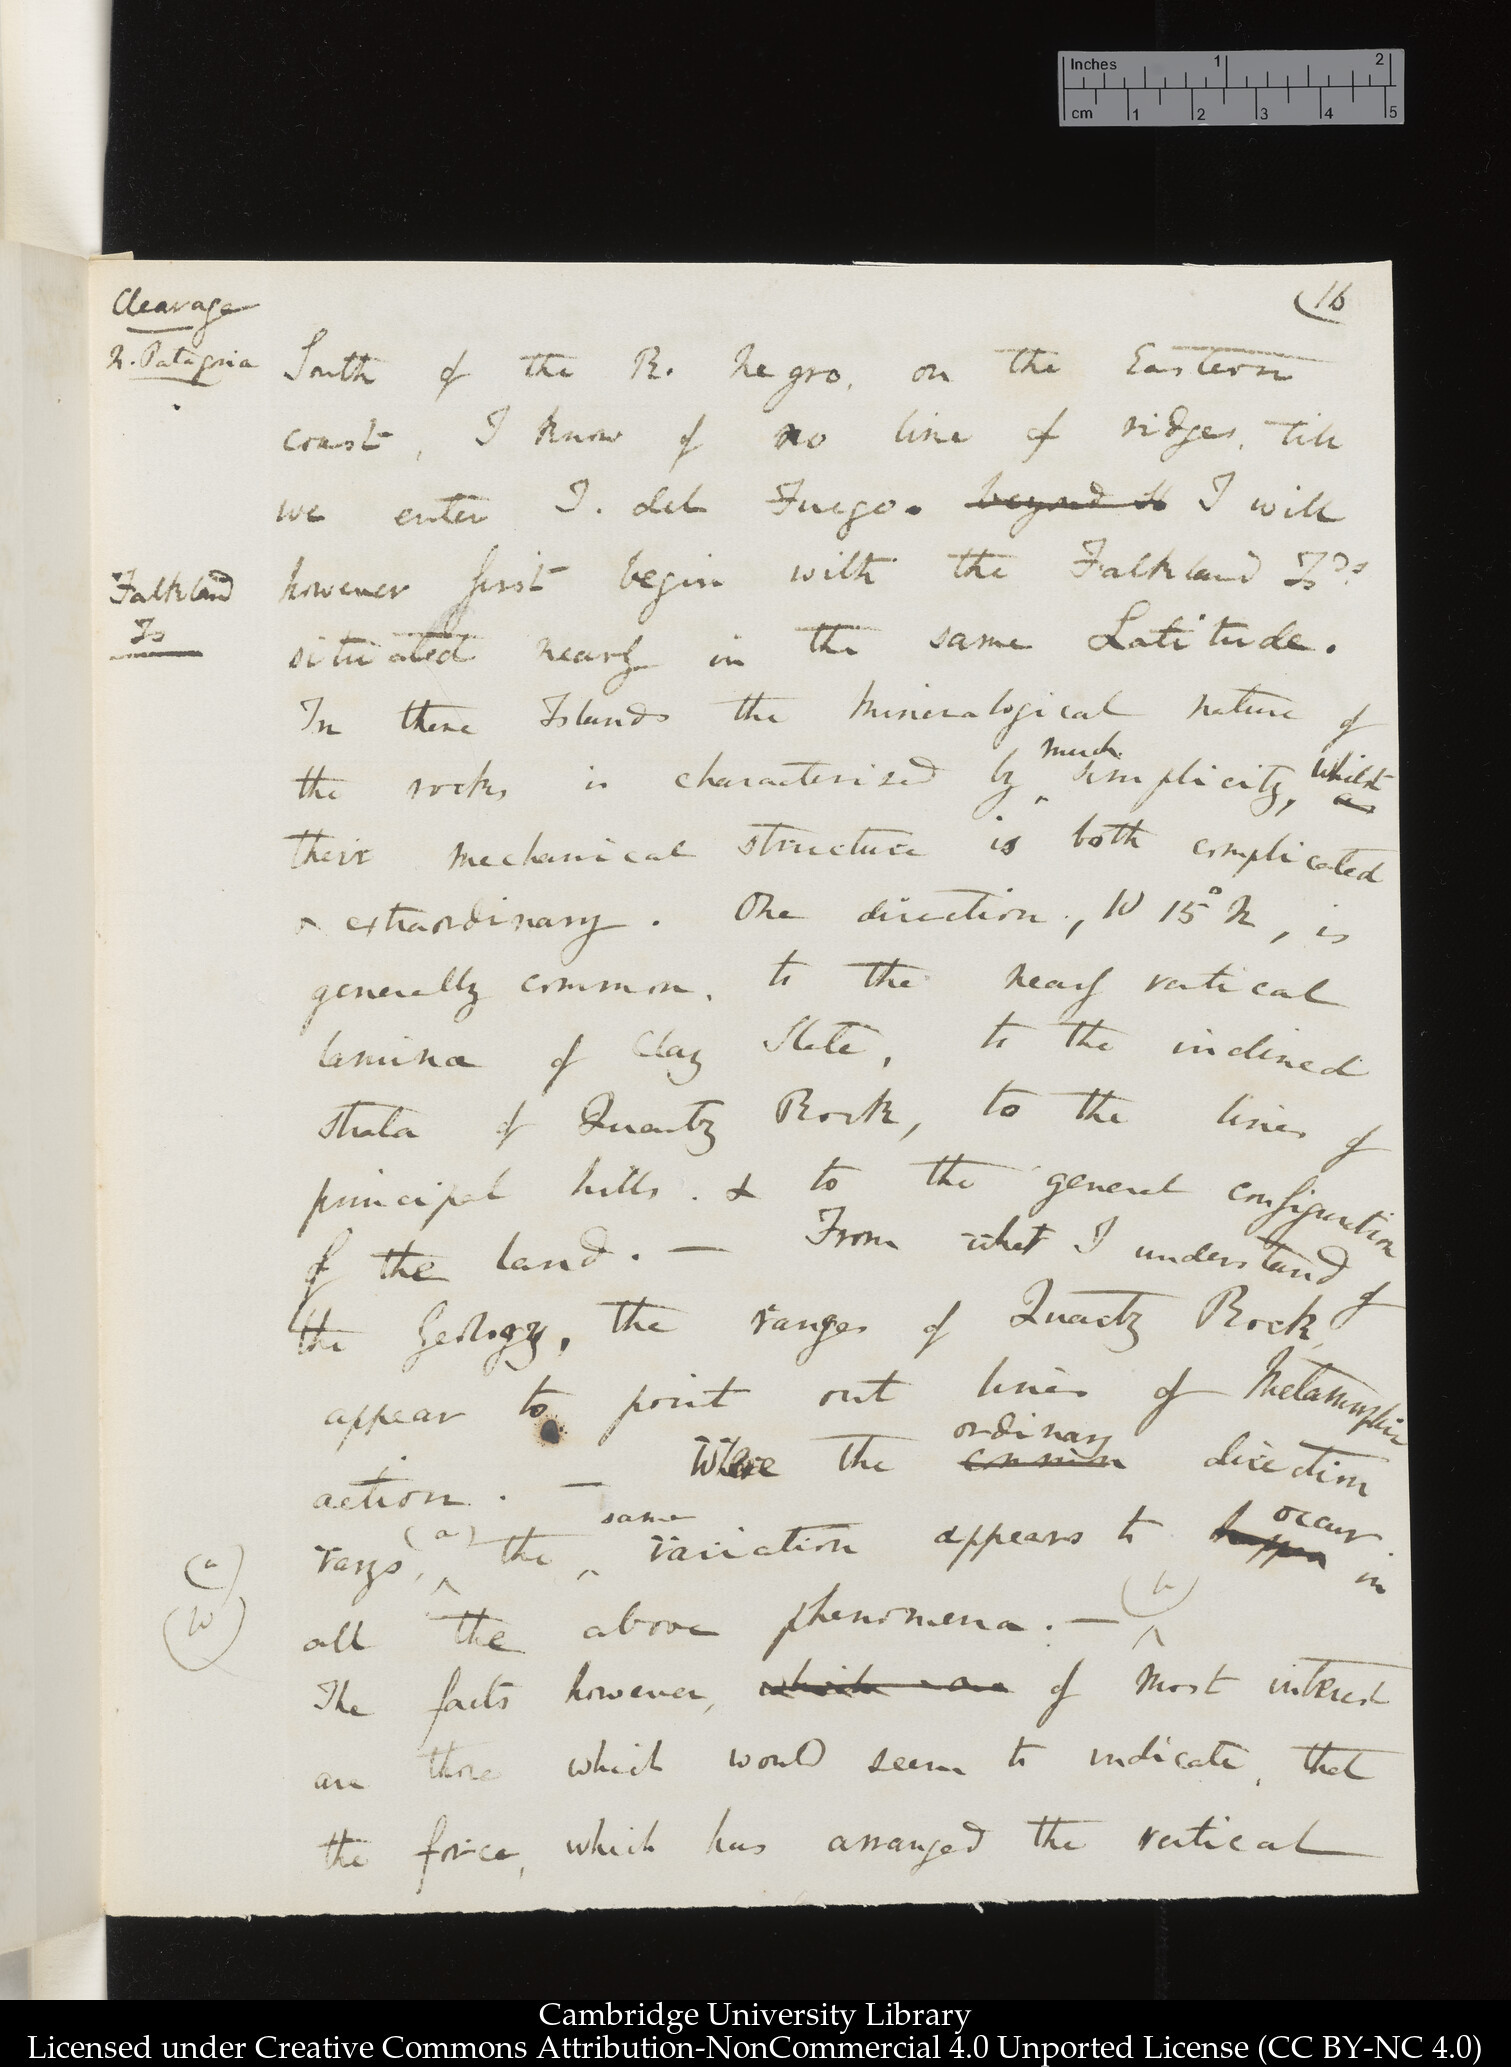 Inches 1 2
cm 1 2 3 4 5
16
Cleavage
N. Patagonia
South of the R. Negro, on the Eastern
coast, I know of no line of ridges, till
we enter T. del Fuego. beyond I will
Falkland
Is
however first begin with the Falkland Isds
situated nearly in the same Latitude.
In these Islands the mineralogical nature of
the rocks is characterised by much simplicity, whilst as
their mechanical structure is both complicated
& extraordinary. One direction, W 15° N, is
generally common, to the nearly vertical
lamina of Clay Slate, to the inclined
strata of Quartz Rock, to the lines of
principal hills. & to the general configuration
of the land. — From what I understand of
the Geology, the ranges of Quartz Rock,
appear to point out lines of Metamorphic
action. — Where the common ordinary direction
varys, (a) the same variation appears to happen occur in
(a)
(b)
all the above phenomena. — (b)
The facts however, which are of most interest
are those which would seem to indicate, that
the force, which has arranged the vertical
Cambridge University Library
Licensed under Creative Commons Attribution-NonCommercial 4.0 Unported License (CC BY-NC 4.0)